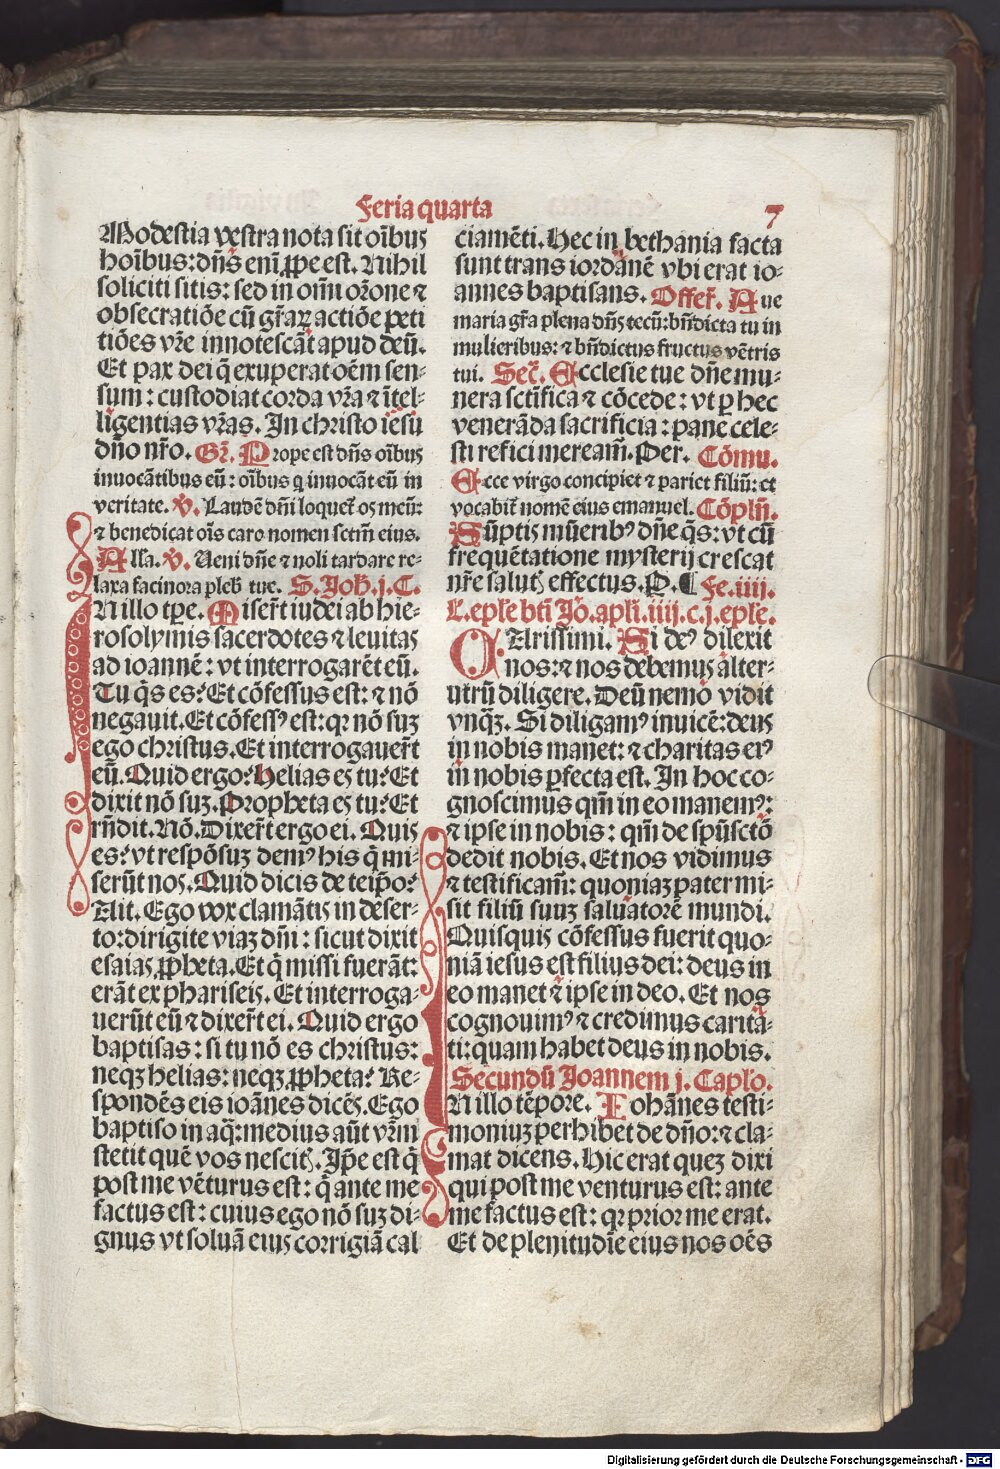 Feria quarta
7
Modestia vestra nota sit oı̄bus
hoı̄bus: dn̄s enī ꝓpe est. Nihil
soliciti sitis: sed in om̄i or̄one ⁊
obsecratiōe cū gr̄aꝝ actiōe peti
tiōes vr̄e innotescāt apud deū.
Et pax dei q̄ exuperat oēm sen-
sum: custodiat corda vr̄a ⁊ ītel-
ligentias vr̄as. In christo iesu
dn̄o nr̄o. Gr̄. Prope est dn̄s oı̄bus
inuocātibus eū: oı̄bus q inuocāt eū in
veritate. ℣. Laudē dn̄i loquet̄ os meū:
⁊ benedicat oı̄s caro nomen sctm̄ eius.
Alla. ℣. Ueni dn̄e ⁊ noli tardare re-
laxa facinora pleb̄ tue. S. Joh̄. j. C.
IN illo tp̄e. Miser̄t iudei ab hie-
rosolymis sacerdotes ⁊ leuitas
ad ioannē: vt interrogarēt eū.
Tu q̄s es? Et cōfessus est: ⁊ nō
negauit. Et cōfessꝰ est: qꝛ nō suꝫ
ego christus. Et interrogauer̄t
eū. Quid ergo? Helias es tu? Et
dixit nō suꝫ. Propheta es tu? Et
rn̄dit. Nō. Dixer̄t ergo ei. Quis
es? vt respōsuꝫ demꝰ his q̄ mi-
serūt nos. Quid dicis de teip̄o?
Ait. Ego vox clamātis in deser-
to: dirigite viaꝫ dn̄i: sicut dixit
esaias ꝓpheta. Et q̄ missi fuerāt:
erāt ex phariseis. Et interroga-
uerūt eū ⁊ dixer̄t ei. Quid ergo
baptisas: si tu nō es christus:
neqꝫ helias: neqꝫ ꝓpheta? Re-
spondēs eis ioānes dicēs. Ego
baptiso in aq̄: medius aūt vr̄m
stetit quē vos nescitꝭ. Ip̄e est q̄
post me vēturus est: q̄ ante me
factus est: cuius ego nō suꝫ di-
gnus vt soluā eius corrigiā cal
ciamēti. Hec in bethania facta
sunt trans iordanē vbi erat io-
annes baptisans. Offer̄. Aue
maria gr̄a plena dn̄s tecū: bn̄dicta tu in
mulieribus: ⁊ bn̄dictus fructus vētris
tui. Secr̄. Ecclesie tue dn̄e mu-
nera sctīfica ⁊ cōcede: vt ꝑ hec
venerāda sacrificia: pane cele-
sti refici meream̄. Per. Cōmu.
Ecce virgo concipiet ⁊ pariet filiū: et
vocabit̄ nomē eius emanuel. Cōpln̄.
Sūptis mūeribꝰ dn̄e q̄s: vt cū
frequētatione mysterij crescat
nr̄e salutꝭ effectus. P. ⸿ Fe. iiij.
L. epl̄e bti Jō. apl̄i. iiij. c. j. epl̄e.
CArissimi. Si deꝰ dilexit
nos: ⁊ nos debemus alter-
utrū diligere. Deū nemo vidit
vnqꝫ. Si diligamꝰ inuicē: deus
in nobis manet: ⁊ charitas eiꝰ
in nobis ꝑfecta est. In hoc co-
gnoscimus qm̄ in eo manemꝰ:
⁊ ipse in nobis: qm̄ de spū sctō
dedit nobis. Et nos vidimus
⁊ testificam̄: quoniaꝫ pater mi-
sit filiū suuꝫ saluatorē mundi.
Quisquis cōfessus fuerit quo-
niā iesus est filius dei: deus in
eo manet ⁊ ipse in deo. Et nos
cognouimꝰ ⁊ credimus carita-
ti: quam habet deus in nobis.
Secundū Joannem j. Capl̄o.
IN illo tēpore. Iohānes testi-
moniuꝫ perhibet de dn̄o: ⁊ cla-
mat dicens. Hic erat queꝫ dixi
qui post me venturus est: ante
me factus est: qꝛ prior me erat.
Et de plenitudīe eius nos oēs
Digitalisierung gefördert durch die Deutsche Forschungsgemeinschaft - DFG